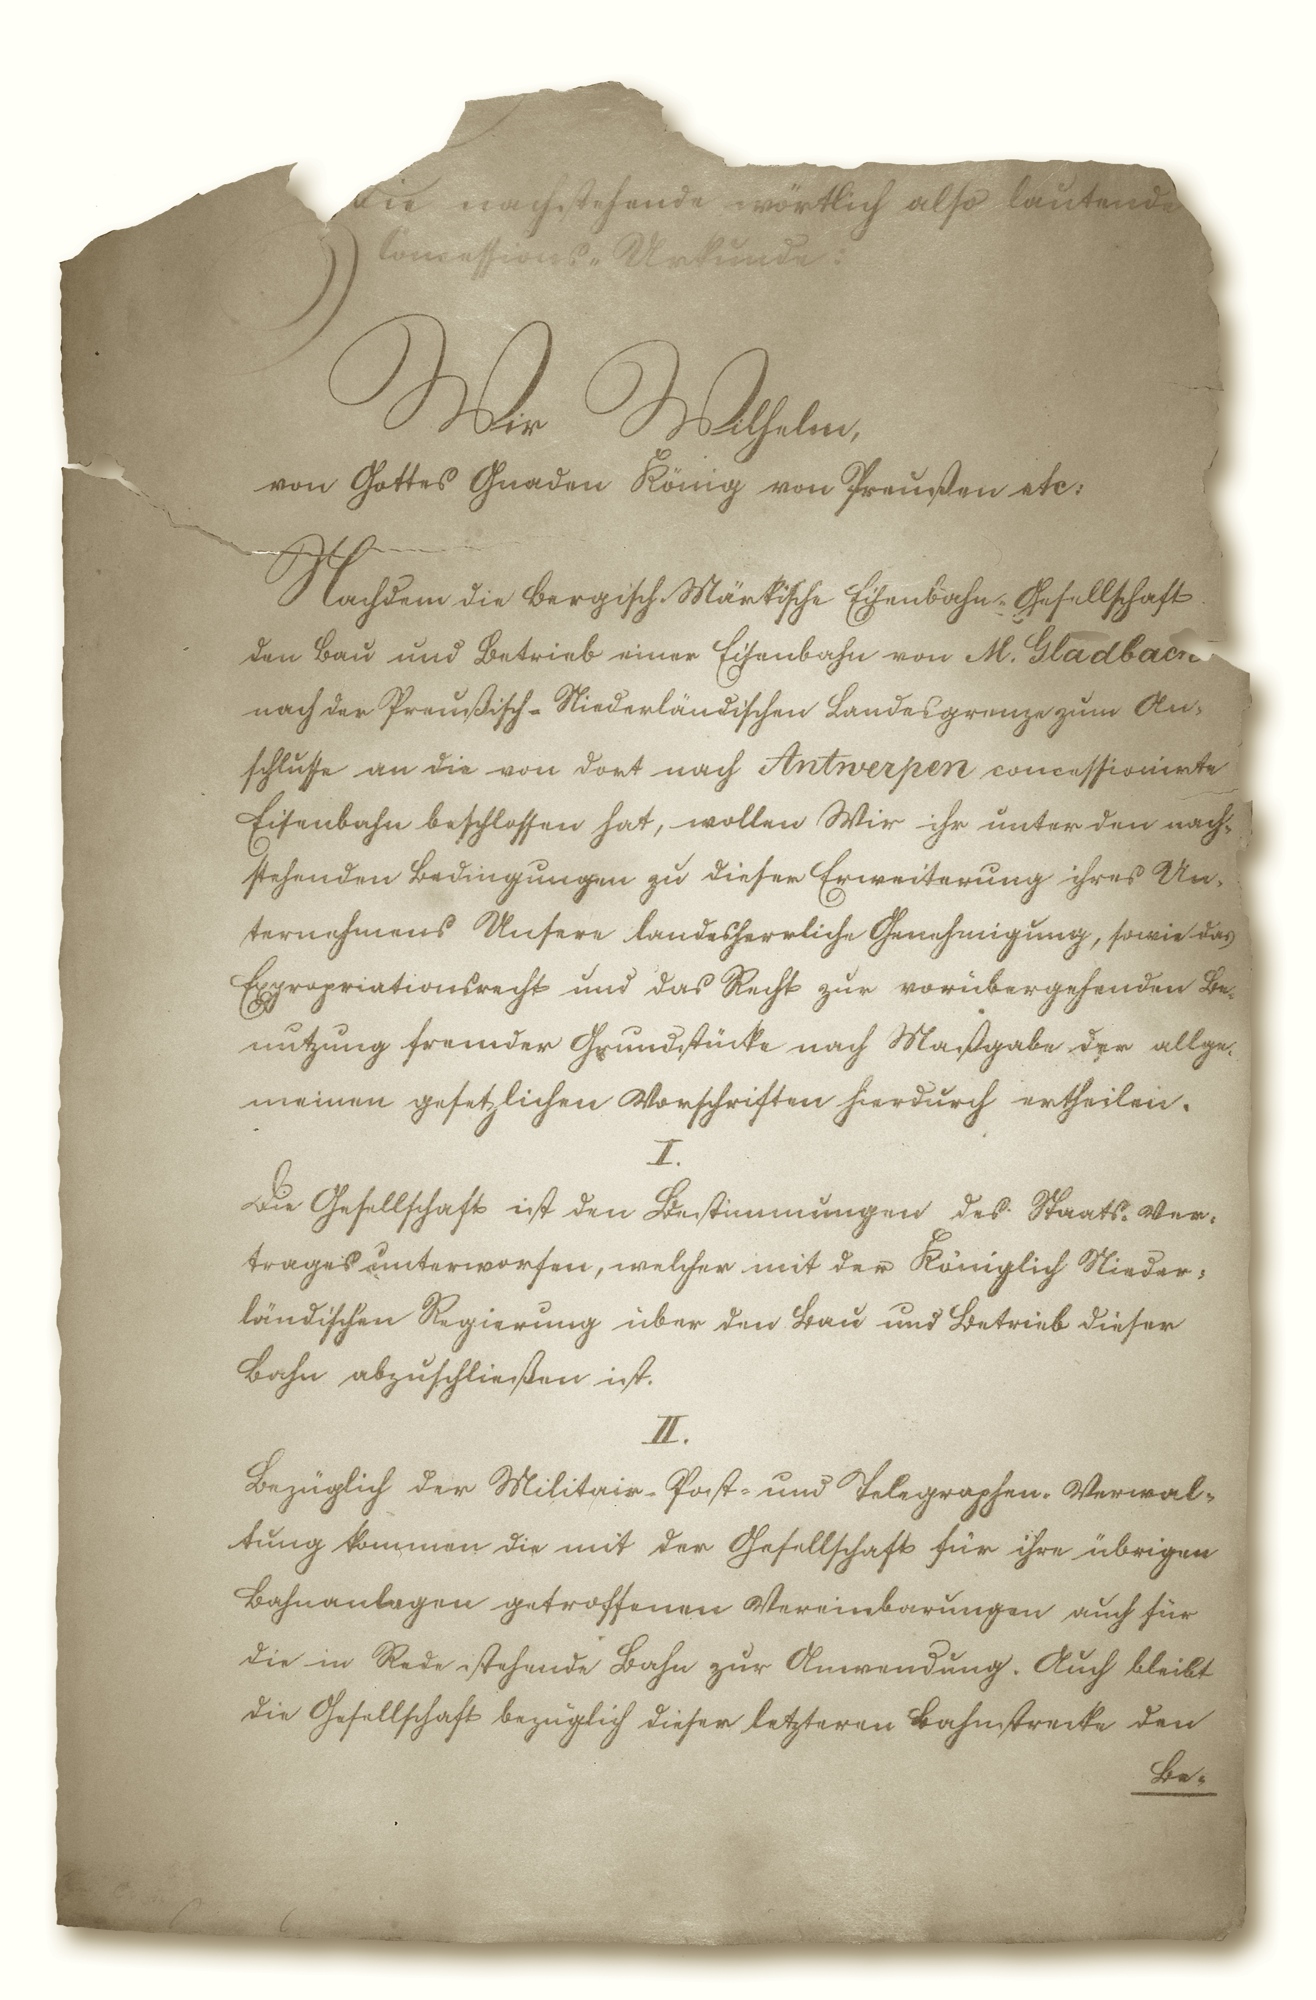 die nachstehende wörtlich also lautende
Concessions-Urkunde:
Wir Wilhelm,
von Gottes Gnaden König von Preußen etc:
Nachdem die Bergisch-Märkische Eisenbahn-Gesellschaft
den Bau und Betrieb einer Eisenbahn von M. Gladbach
nach der Preußisch-Niederländischen Landesgrenze zum An-
schlusse an die von dort nach Antwerpen concessionirte
Eisenbahn beschlossen hat, wollen Wir ihr unter den nach-
stehenden Bedingungen zu dieser Erweiterung ihres Un-
ternehmens Unsere landesherrliche Genehmigung, sowie das
Expropriationsrecht und das Recht zur vorübergehenden Be-
nutzung fremder Grundstücke nach Maßgabe der allge-
meinen gesetzlichen Vorschriften hierdurch ertheilen.
I.
Die Gesellschaft ist den Bestimmungen des Staats-Ver-
trages unterworfen, welcher mit der Königlich Nieder-
ländischen Regierung über den Bau und Betrieb dieser
Bahn abzuschließen ist.
II.
Bezüglich der Militair-Post- und Telegraphen-Verwal-
tung kommen die mit der Gesellschaft für ihre übrigen
Bahnanlagen getroffenen Vereinbarungen auch für
die in Rede stehende Bahn zur Anwendung. Auch bleibt
die Gesellschaft bezüglich dieser letzteren Bahnstrecke den
Be-